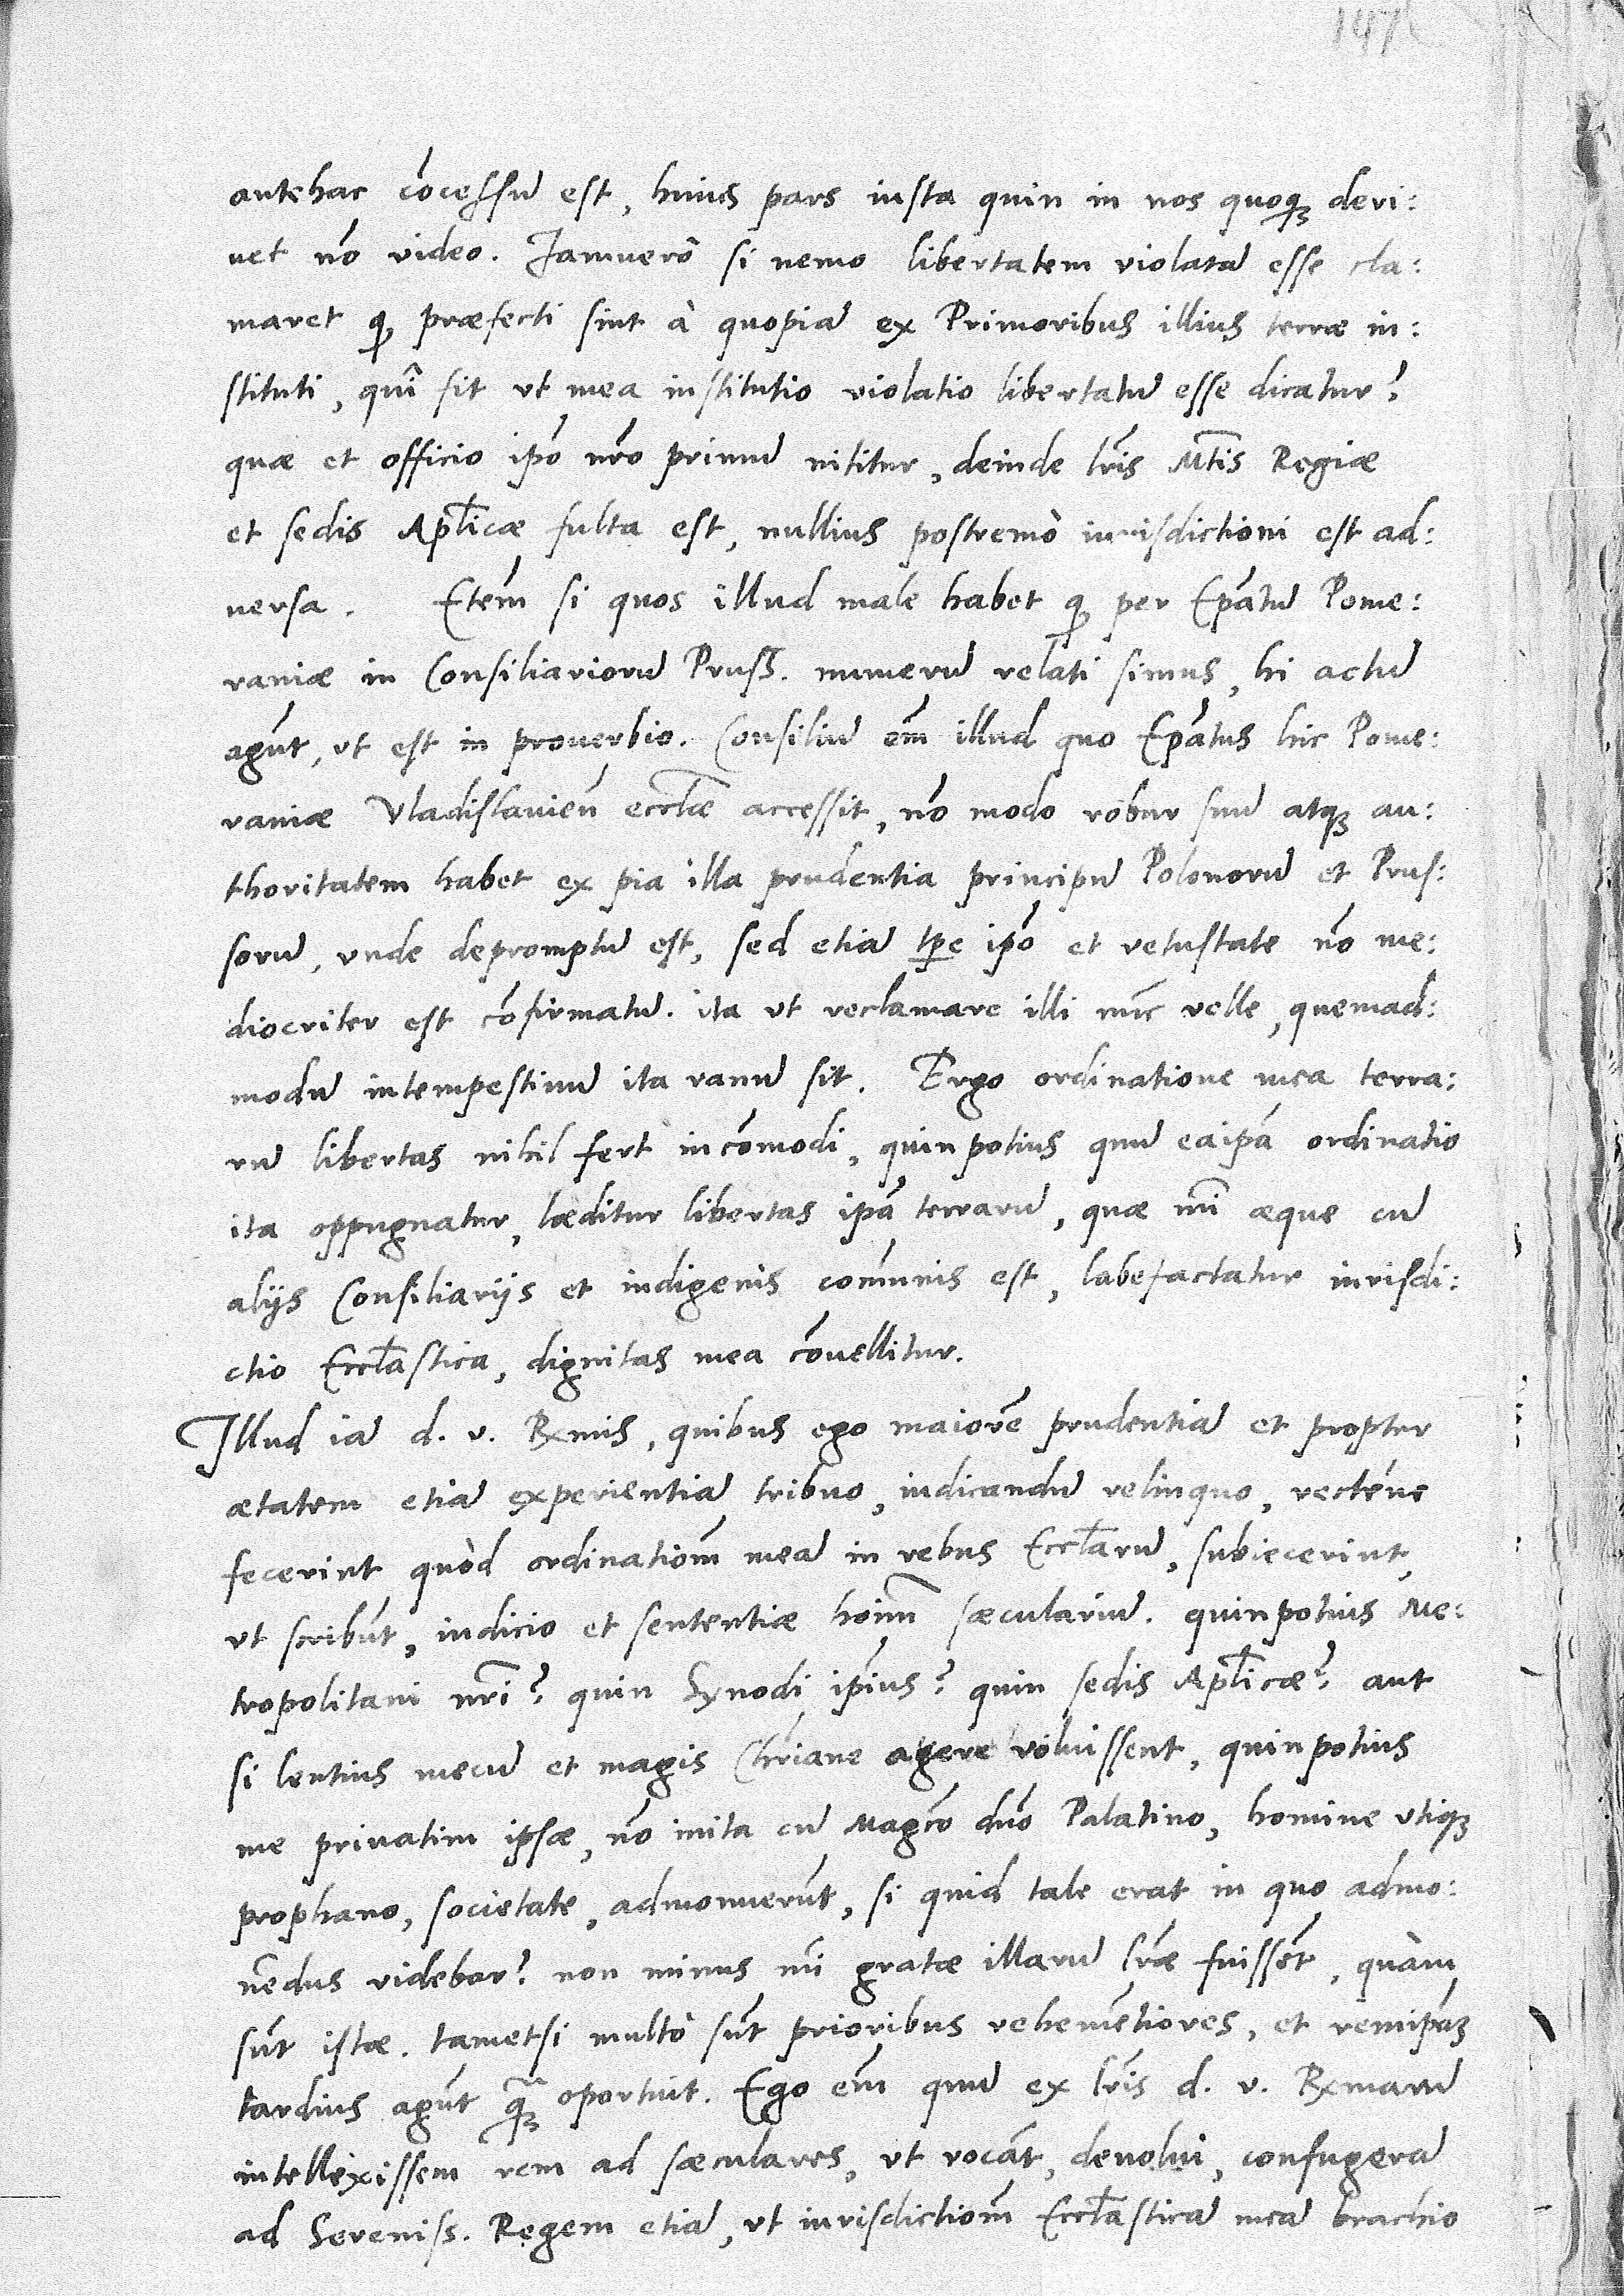 147
antehac cōcessū est, huius pars iusta quin in nos quoqꝫ deri:
uet nō video. Jamuerò si nemo libertatem violatā esse cla:
maret ꝙ præfecti sint à quopiā ex Primoribus illius terræ in:
stituti, quî fit vt mea institutio violatio libertatū esse dicatur?
quæ et officio ipō nr̄o primū nititur, deinde lr̄is Mtis Regiæ
et sedis Aplicæ fulta est, nullius postremò iurisdictioni est ad:
uersa. Etem̄ si quos illud male habet ꝙ per Ep̄atū Pome:
raniæ in Consiliariorū Pruss. numerū relati simus, hi actū
agūt, vt est in prouerbio. Consiliū em̄ illud quo Ep̄atus hic Pome:
raniæ Vladislauień eccl̄æ accessit, nō modo robur suū atqꝫ au:
thoritatem habet ex pia illa prudentia principū Polonorū et Prus:
sorū, vnde depromptū est, sed etiā tp̄e ipō et vetustate nō me:
diocriter est cōfirmatū. ita vt reclamare illi nūc velle, quemad:
modū intempestiuū ita vanū sit. Ergo ordinatione mea terra:
rū libertas nihil fert incōmodi, quinpotius quū eaip̄a ordinatio
ita oppugnatur, læditur libertas ip̄a terrarū, quæ mī æque cū
alijs Consiliarijs et indigenis com̄unis est, labefactatur iurisdi:
ctio Eccl̄astica, dignitas mea cōuellitur.
Illud iā d. v. Rxmis, quibus ego maiorē prudentiā et propter
ætatem etiā experientiā tribuo, iudicandū relinquo, recténe
fecerint quòd ordinationm̄ meā in rebus Eccl̄arū, subiecerint,
vt scribūt, iudicio et sententiæ hoīm sæculariū. quinpotius Me:
tropolitani nr̄i? quin Synodi ip̄ius? quin sedis Aplicæ? aut
si lentius mecū et magis Chr̄iane agere voluissent, quinpotius
me priuatim ipsæ, nō inita cū Magco dn̄o Palatino, homine vtiqꝫ
prophano, societate, admonuerūt, si quid tale erat in quo admo:
nēdus videbar? non minus mī gratæ illarū lr̄æ fuissēt, quàm
sūt istæ. tametsi multò sūt prioribus vehemētiores, et remip̄am
tardius agūt ꝙ̄ oportuit. Ego em̄ quū ex lr̄is d. v. Rxmarū
intellexissem rem ad sæculares, vt vocāt, deuolui, confugerā
ad Sereniss. Regem etiā, vt iurisdictionm̄ Eccl̄asticā meā brachio